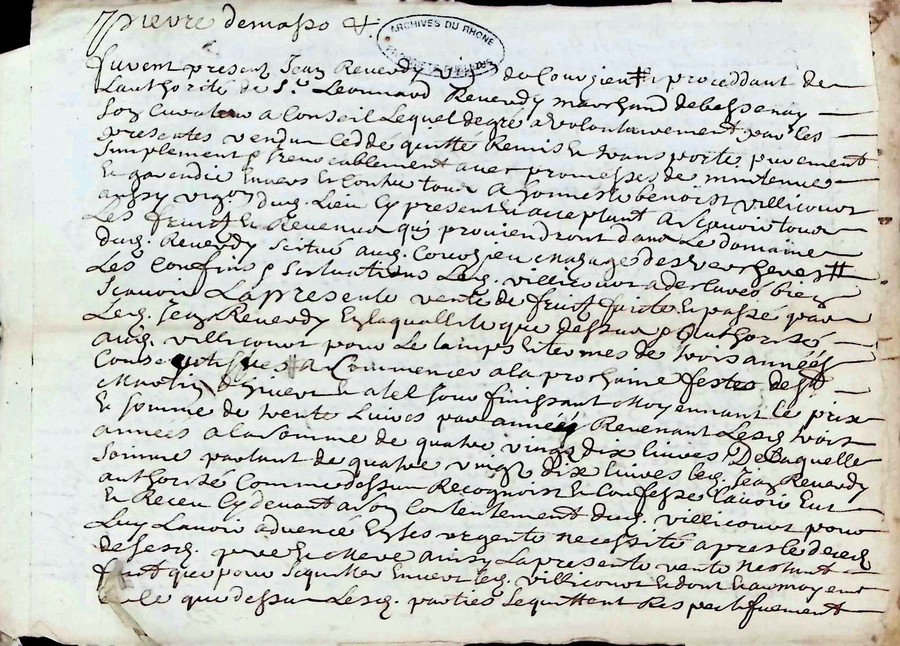 pierre demasso
ARCHIVES DU RHONE
furent present Jean Reverdy de Courzieu proceddant de
Lauthorité de Sr Leonnard Reverdy marchand debessenay
Son Curateur a Conseil Lequel degré a volontairement par les
presentes vendu ceddé quitté Remis et transporté purement
Simplement et Irrevocablement avec promesses de maintenue
Et garendie Envers et Contre tous A honneste benoist villicourt
aussy dud. Lieu Cy present et acceptant A Scavoir tous
Les fruits et Revenus qui proviendront dans Le domaine
dud. Reverdy scitué aud. Courzieu
Les Confins et scituations Led. villicourt a desclarés bien
Scavoir La presente vente de fruits faicte et passé par
Led. Jean Reverdy En laquallité que dessus et authorisé
aud. villicourt pour Le temps et termes de trois années
Consequtisves a Commencer a la prochaine festes de St
Martin dhiver et a tel Jour finissant Moyennant le prix
Et somme de trente Livres par années Revenant Lesd. trois
années a la Somme de quatre vingt dix livres De Laquelle
Somme partant de quatre vingt dix livres led. Jean Reverdy
authorisé Comme dessus Recognoist et Confesse Lavoir Eut
Et Receu Cy devant a Son Contentement dud. villicourt pour
Luy Lavoir advencé En ses urgente necessité apres le deceds
de sesd. pere et Mere ainsy La presente vente nestant
fait que pour Sequitter Envers led. villicourt et dont Et au moyent
que dessus Lesd. parties Sequittent Respectifvement